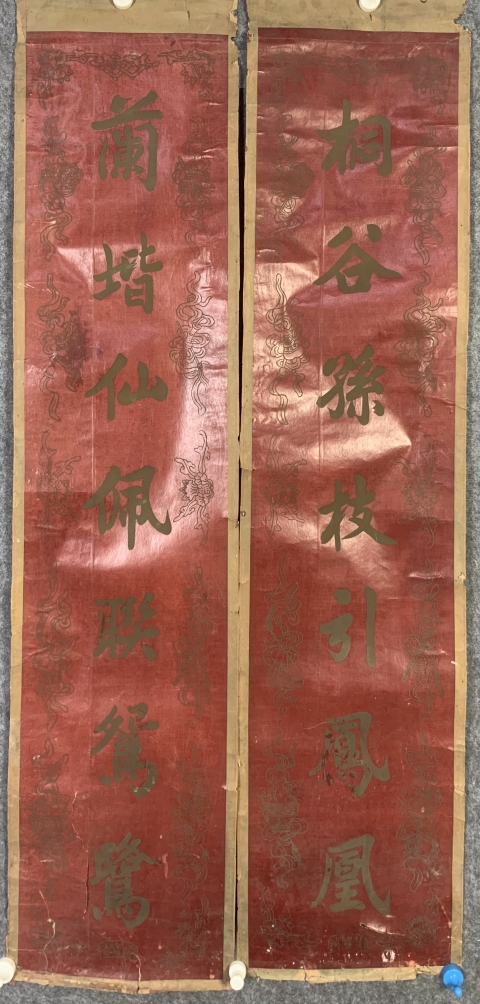 桐谷孫枝引鳳凰
蘭堦仙佩聯鴛鷺